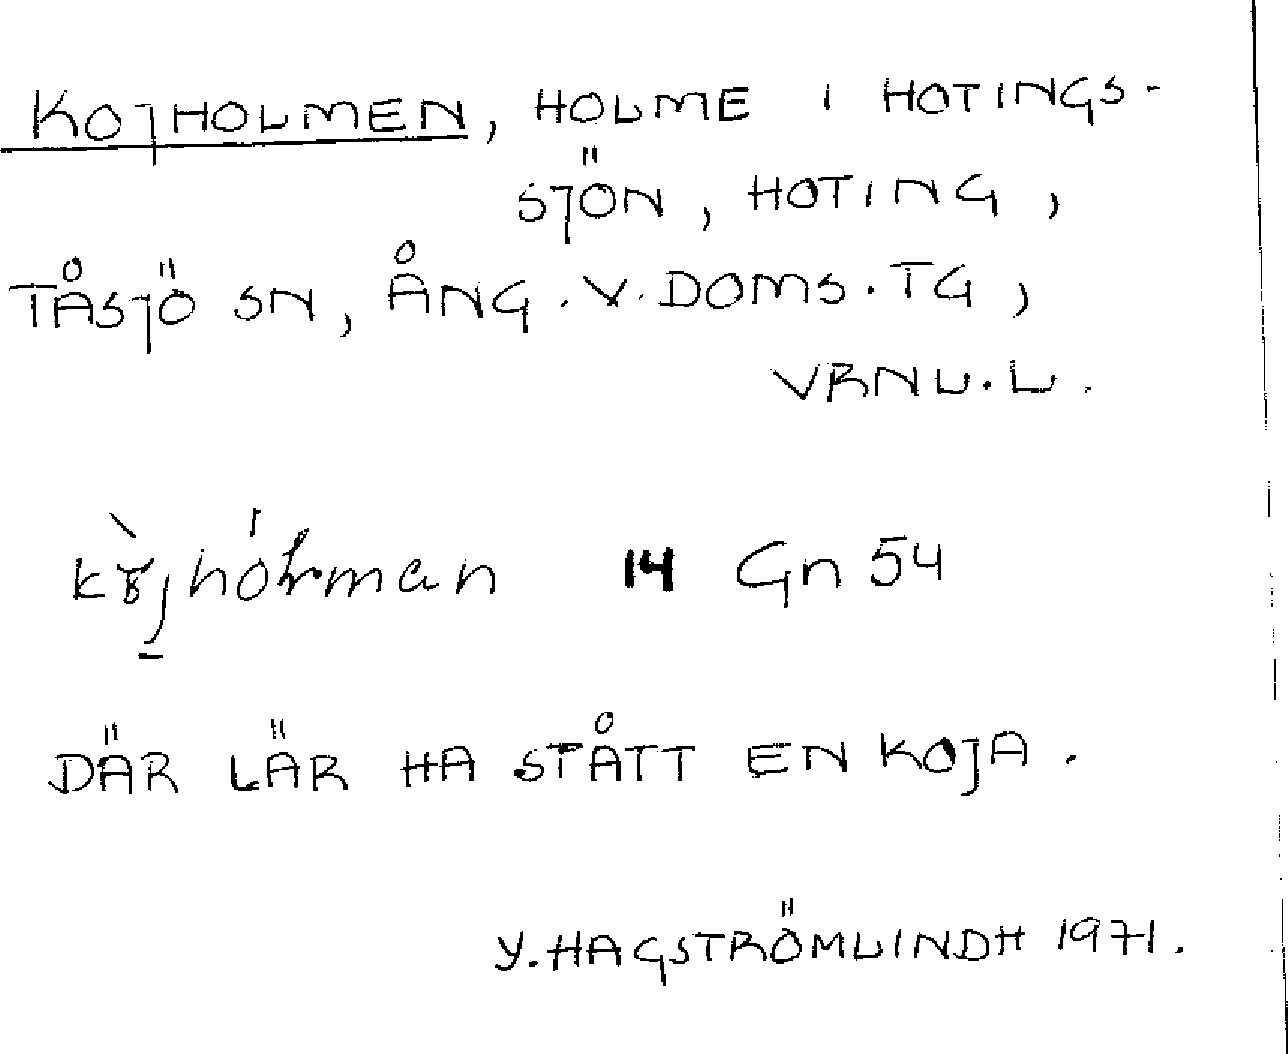 KOJHOLMEN, HOLME I HOTINGS-
SJÖN, HOTING,
TÅSJÖ SN, ÅNG. V. DOMS. TG,
VRNL. L.
14 Gn 54
DÄR LÄR HA STÅTT EN KOJA.
Y. HAGSTRÖMLINDH 1971.